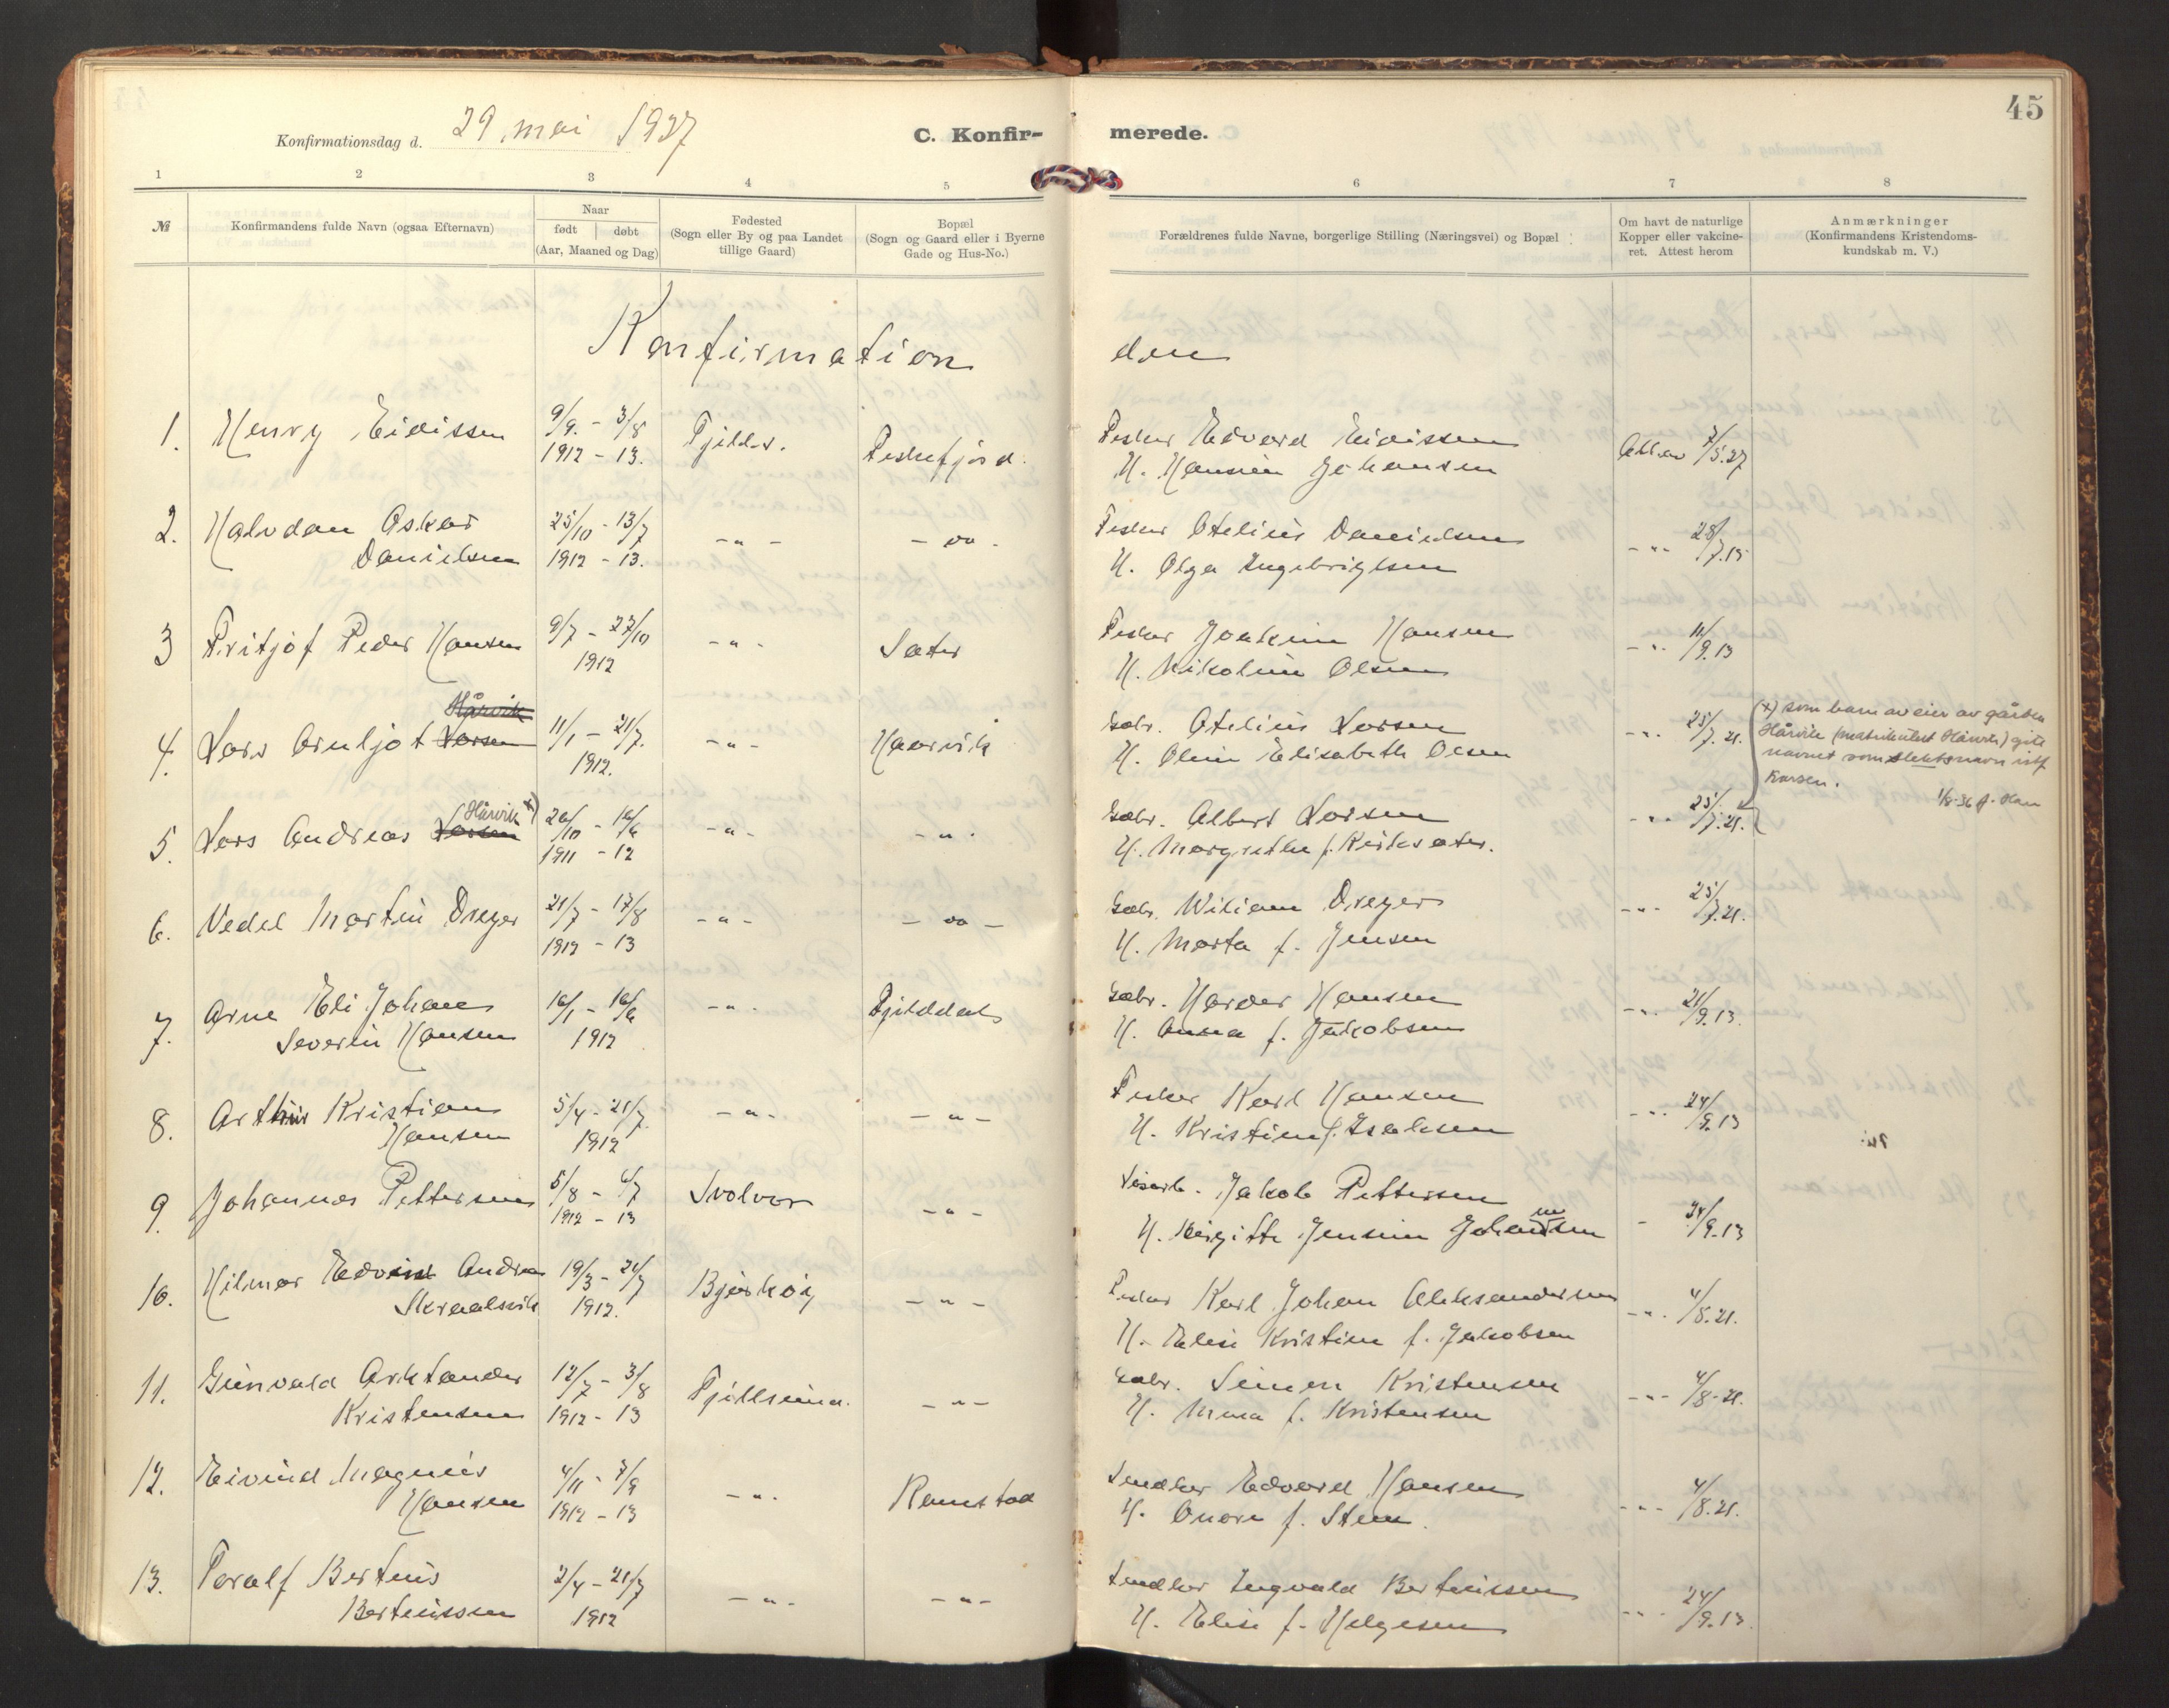 45
Konfirmationsdag d. 29 mai 1927
C. Konfir-
merede.
1 2 3 4 5 6 7 8
№
Konfirmandens fulde Navn (ogsaa Efternavn)
Naar
født døbt
(Aar, Maaned og Dag)
Fødested
(Sogn eller By og paa Landet
tillige Gaard)
Bopæl
(Sogn og Gaard eller i Byerne
Gade og Hus-No.)
Forældrenes fulde Navne, borgerlige Stilling (Næringsvei) og Bopæl
Om havt de naturlige
Kopper eller vakcine-
ret. Attest herom
Anmærkninger
(Konfirmandens Kristendoms-
kundskab m. V.)
Konfirmation den
1. Henry Eidissen 9/9. - 3/8 1912 - 13. Fjelds. Fiskefjord.
Fisker Edvard Eidissen
H. Hansine Johansen
Att. av 7/5.27
2. Halvdan Oskar
Danielsen 25/10 - 13/7 1912 - 13. -"- -"-
Fisker Otelius Danielsen
H. Olga Ingebrigtsen
-"- 28/7.13
3 Fritjof Peder Hansen 9/7 - 27/10 1912 -"- Sæter
Fisker Joakim Hansen
H. Nikoline Olsen
-"- 11/9.13
Hårvik
4. Lars Arnljot Larsen 11/1 - 21/7. 1912. -"- Haarvik
Gbr. Otelius Larsen
H. Oline Elisabeth Olsen
-"- 25/7.21.
(x) som barn av eier av gården
Hårvik (matrikulert Hårvik) gitt
navnet som slektsnavn istf
Larsen.
1/8-36
Hårvik x)
5. Lars Andreas Larsen 26/10 - 16/6 1911 - 12 -"- -"-
Gbr. Albert Larsen
H. Margrethe f. Kirksæter.
-"- 25/7.21.
6. Vedel Martin Dreyer 21/7 - 17/8 1912 - 13 -"- -"-
Gbr. Wiliam Dreyer
H. Marta f. Jensen
-"- 25/7.21.
7. Arne Eli Johan
Severin Hansen 16/1 - 16/6 1912 -"- Fjelddal
Gbr. Harder Hansen
H. Anna f. Jakobsen
-"- 21/9.13.
8. Arthur Kristian
Hansen 5/4 - 21/7. 1912 -"- -"-
Fisker Karl Hansen
H. Kristine f. Isaksen
-"- 24/9.13
9. Johannes Pettersen 5/8 - 6/7 1912 - 13 Svolvær -"-
Jakob Pettersen
H. Birgitte Jensine Johansen
- 24/9.13
10. Hilmar Edvin Andreas
Skraalsvik 19/3 - 21/7 1912. Bjarkøy -"-
Fisker Karl Johan Aleksandersen
H. Elise Kristine f. Jakobsen
-"- 4/8.21.
11. Gunvald Arktander
Kristensen 12/7 - 3/8 1912 - 13 Fjellsund. -"-
Gbr. Simen Kristensen
H. f. Kristensen
-"- 4/8-21.
12. Eivind Magnus
Hansen 4/11 - 7/9 1912 - 13 -"- Ramstad
Edvard Hansen
H. f. Steen.
-"- 4/8.21.
13. Toralf Berteus
Berteussen 2/4 - 21/7 1912 -"- -"-
Ingvald Berteussen
H. Elise f. Helgesen
-"- 24/9.13.